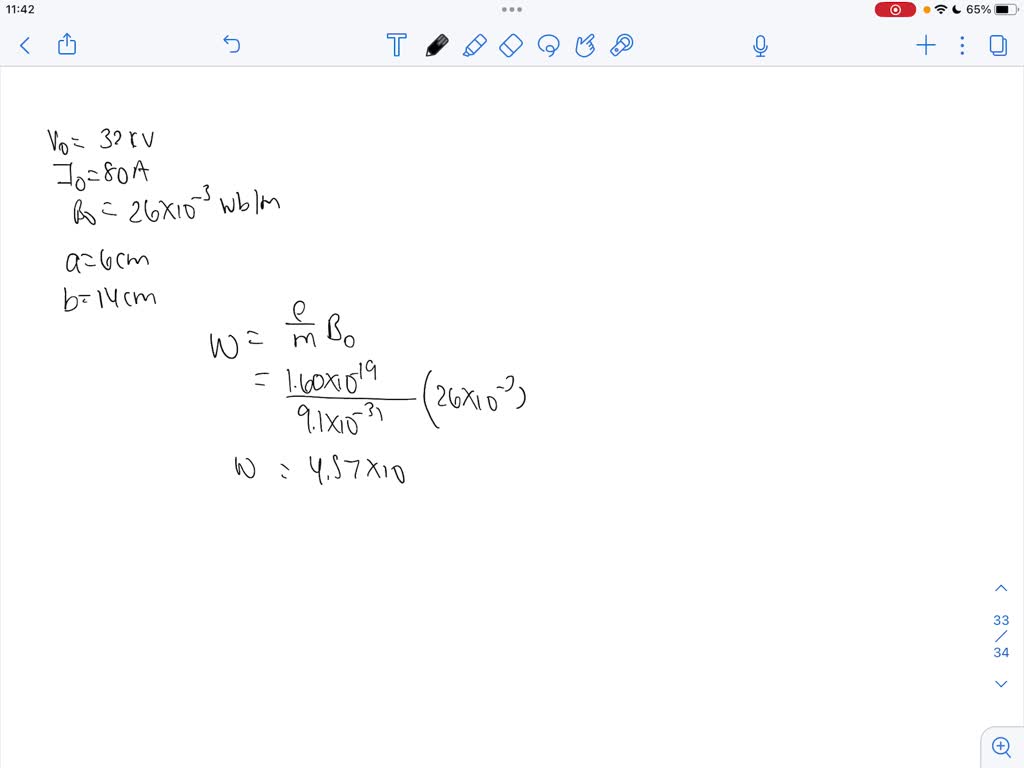 11:42
65%
V₀ = 32 kV
I₀ = 80A
B₀ = 26×10⁻³ Wb/m
a = 6cm
b = 14cm
W = e/m B₀
= 1.60×10⁻¹⁹ / 9.1×10⁻³¹ (26×10⁻³)
W = 4.57×10
33
/
34